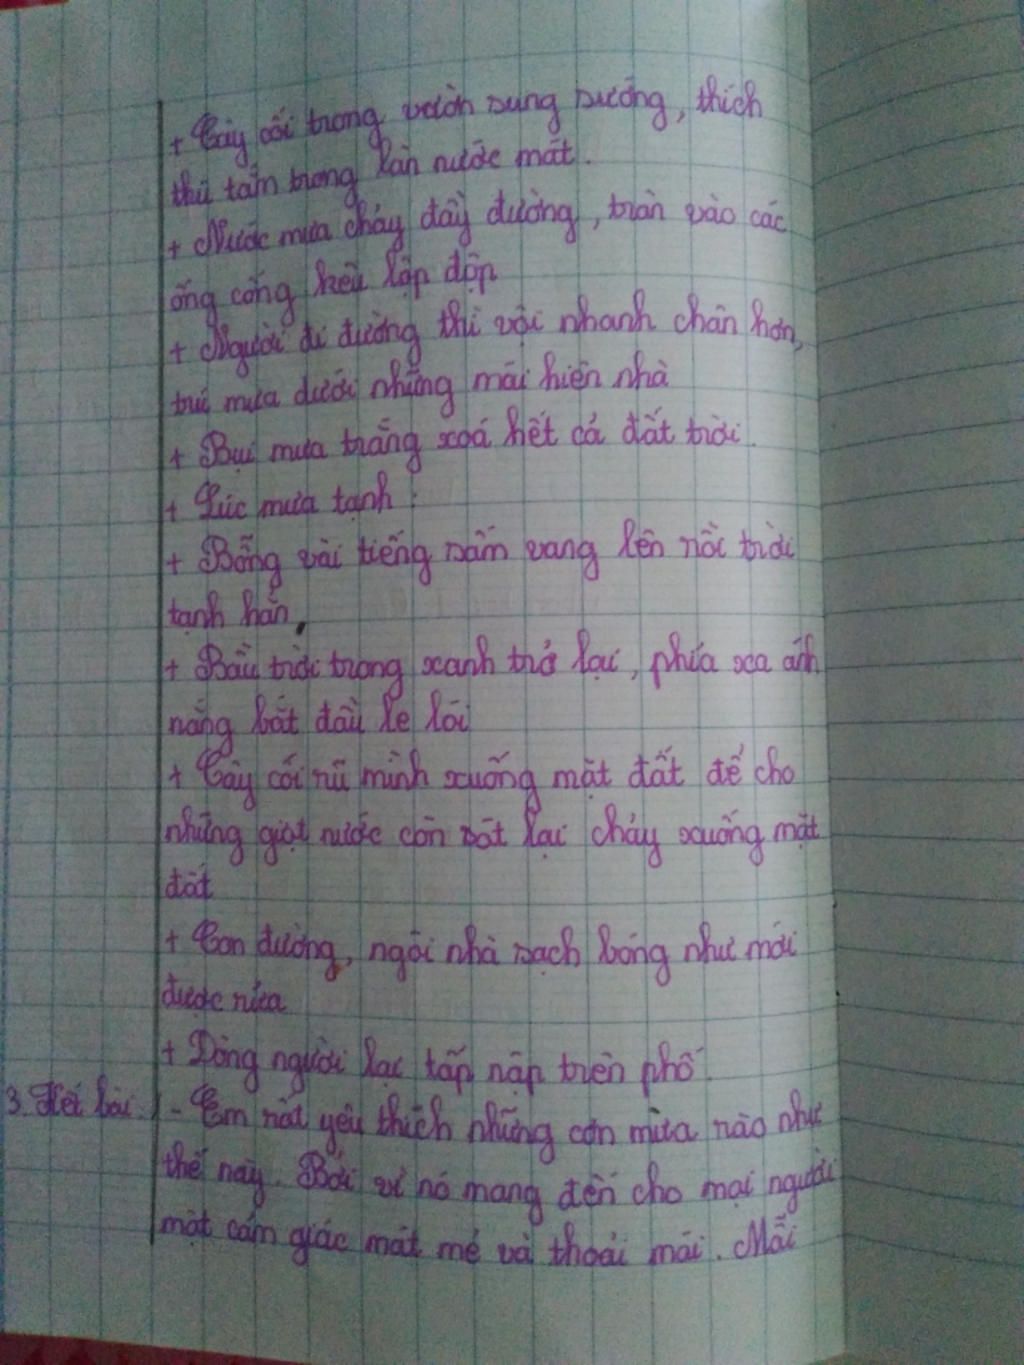 + Cây cối trong vườn sung sướng, thích
thú tắm trong làn nước mát.
+ Nước mưa chảy đầy đường, tràn vào các
ống cống kêu lộp độp
+ Người đi đường thì vội nhanh chân hơn,
trú mưa dưới những mái hiên nhà
+ Bụi mưa trắng xoá hết cả đất trời.
+ Lúc mưa tạnh:
+ Bỗng vài tiếng sấm vang lên rồi trời
tạnh hẳn,
+ Bầu trời trong xanh trở lại, phía xa ánh
nắng bắt đầu le lói
+ Cây cối rũ mình xuống mặt đất để cho
những giọt nước còn sót lại chảy xuống mặt
đất
+ Con đường, ngôi nhà sạch bóng như mới
được rửa
+ Dòng người lại tấp nập trên phố.
3. Kết bài: - Em rất yêu thích những cơn mưa rào như
thế này. Bởi vì nó mang đến cho mọi người
một cảm giác mát mẻ và thoải mái. Mỗi